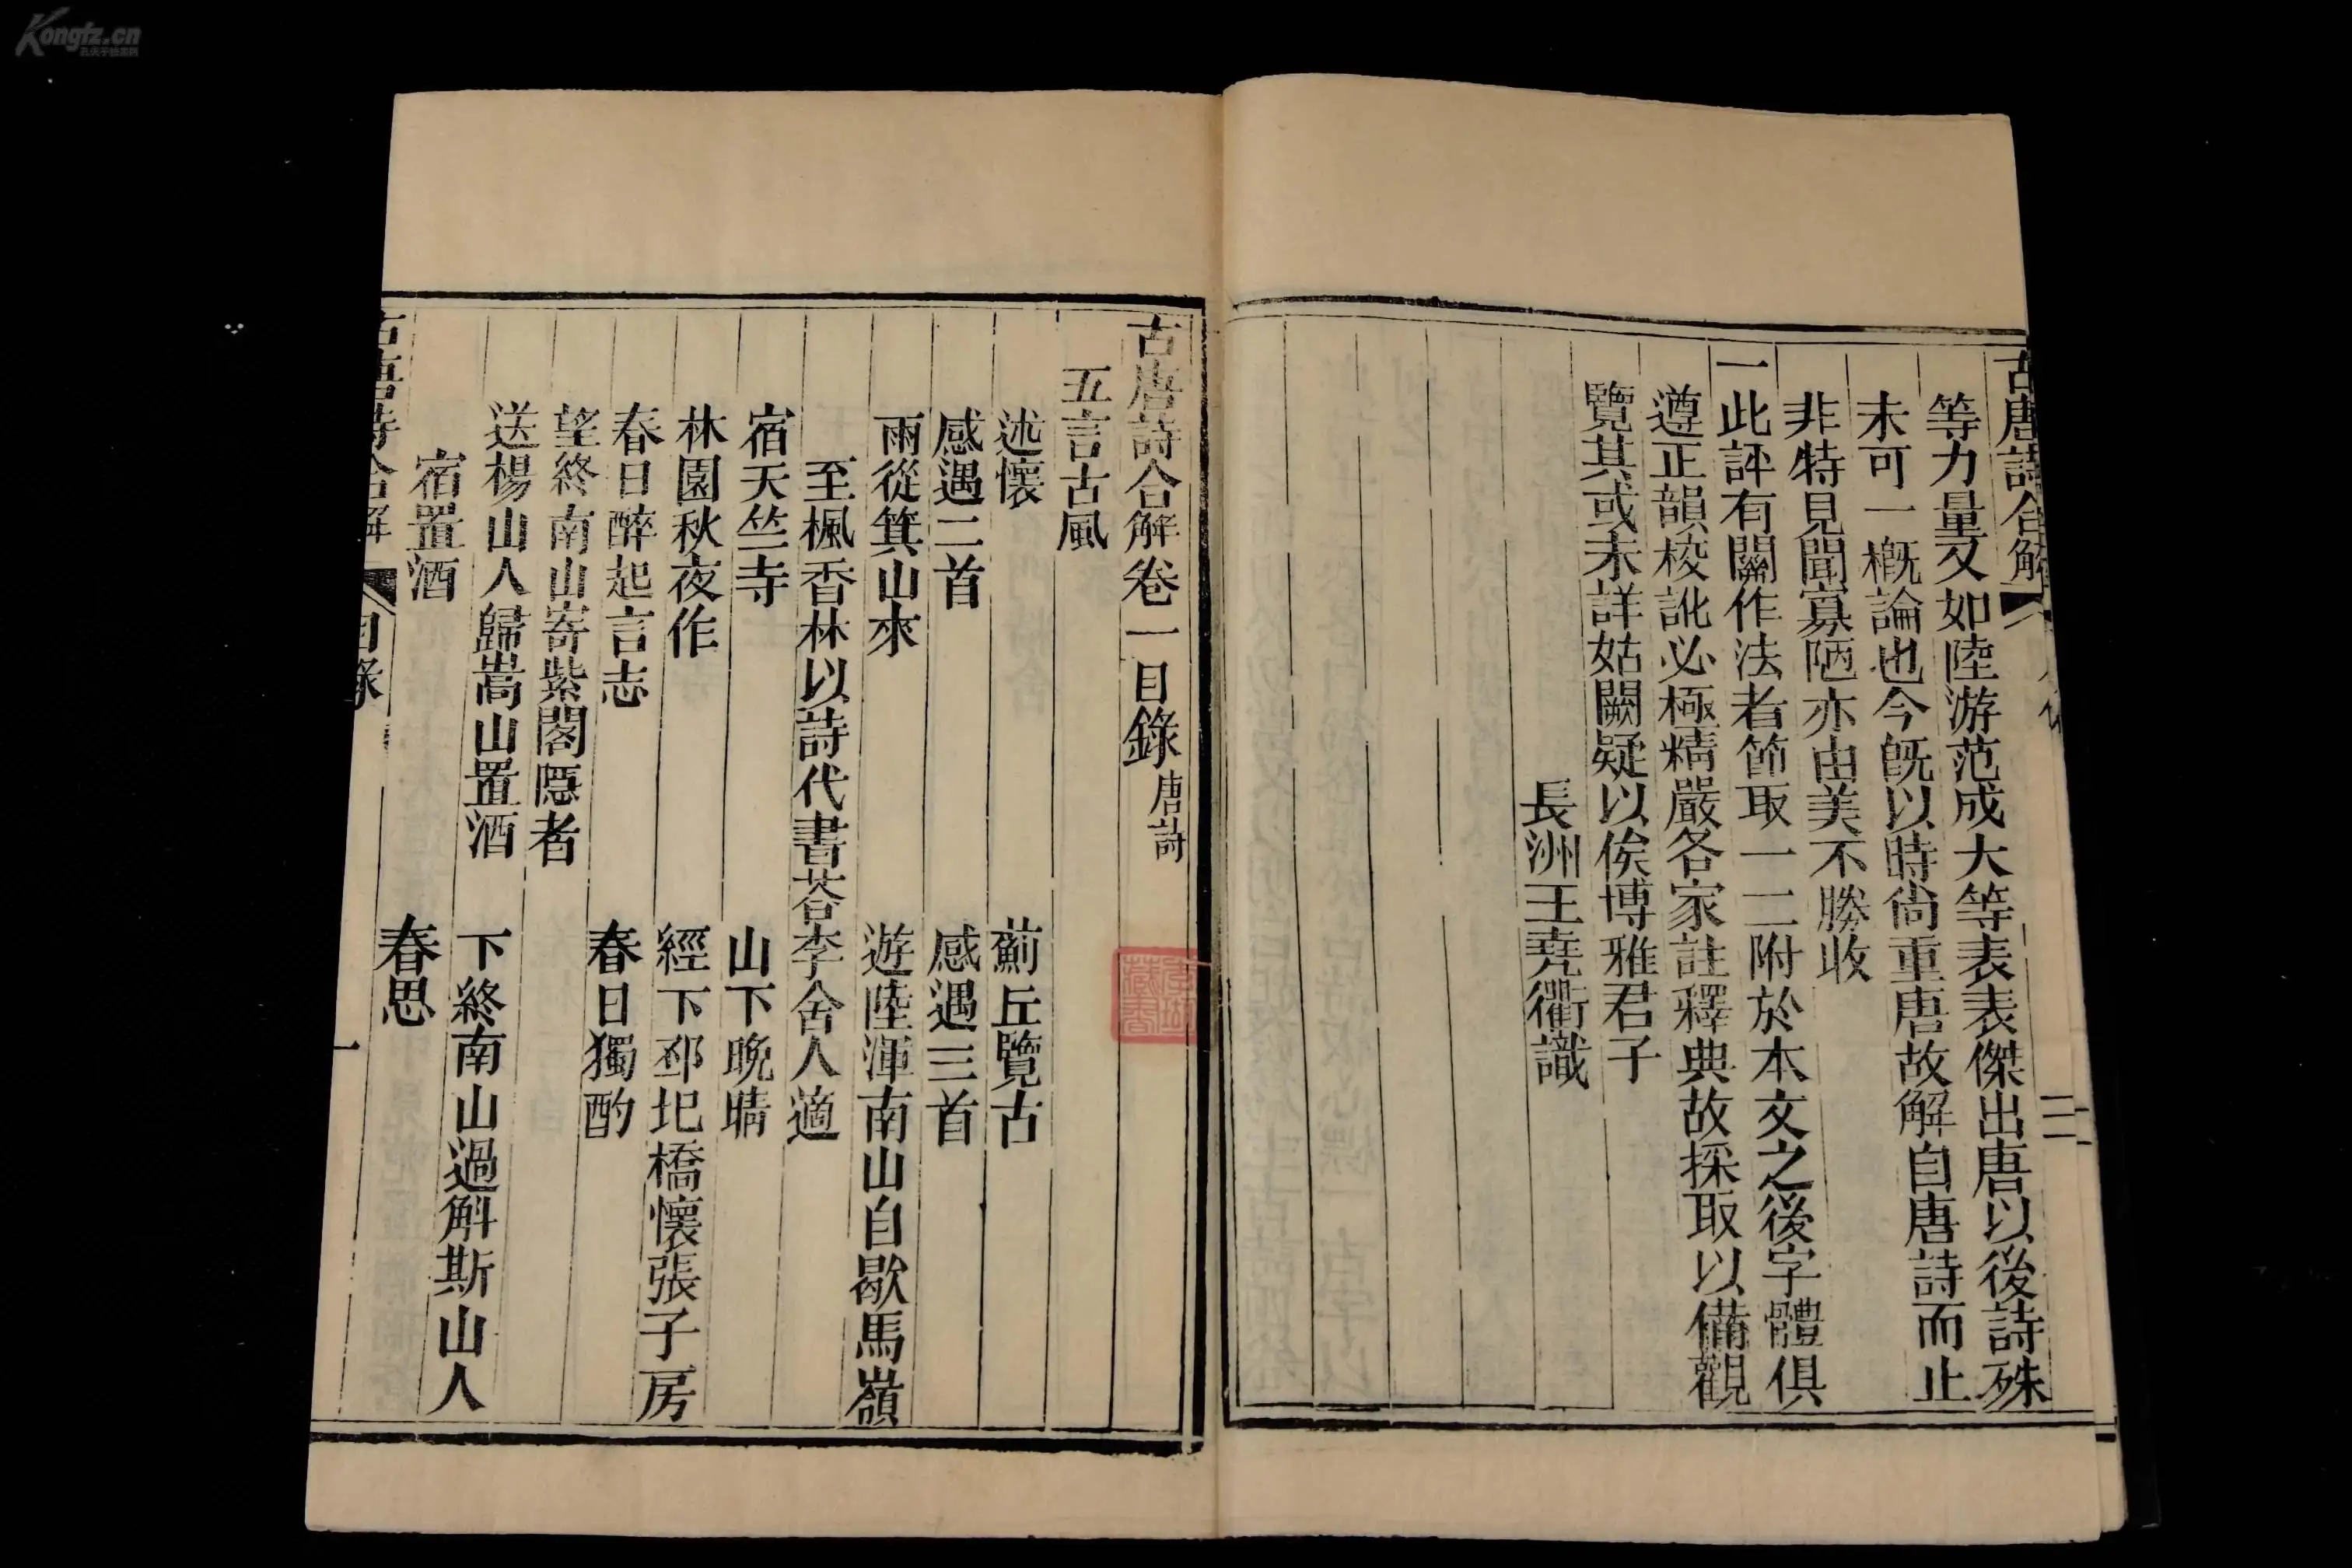 Kongfz.cn
古唐詩合解
二
等力量又如陸游范成大等表表傑出唐以後詩殊
未可一槪論也今旣以時尙重唐故解自唐詩而止
非特見聞寡陋亦由美不勝收
一此評有關作法者節取一二附於本文之後字體俱
遵正韻校訛必極精嚴各家註釋典故採取以備觀
覽其或未詳姑闕疑以俟博雅君子
長洲王堯衢識
古唐詩合解卷一目錄 唐詩
五言古風
述懷 薊丘覽古
感遇二首 感遇三首
雨從箕山來 遊陸渾南山自歇馬嶺
至楓香林以詩代書荅李舍人適
宿天竺寺 山下晚晴
林園秋夜作 經下邳圯橋懷張子房
春日醉起言志 春日獨酌
望終南山寄紫閣隱者
送楊山人歸嵩山置酒 下終南山過斛斯山人
宿置酒 春思
古唐詩合解 目錄 一